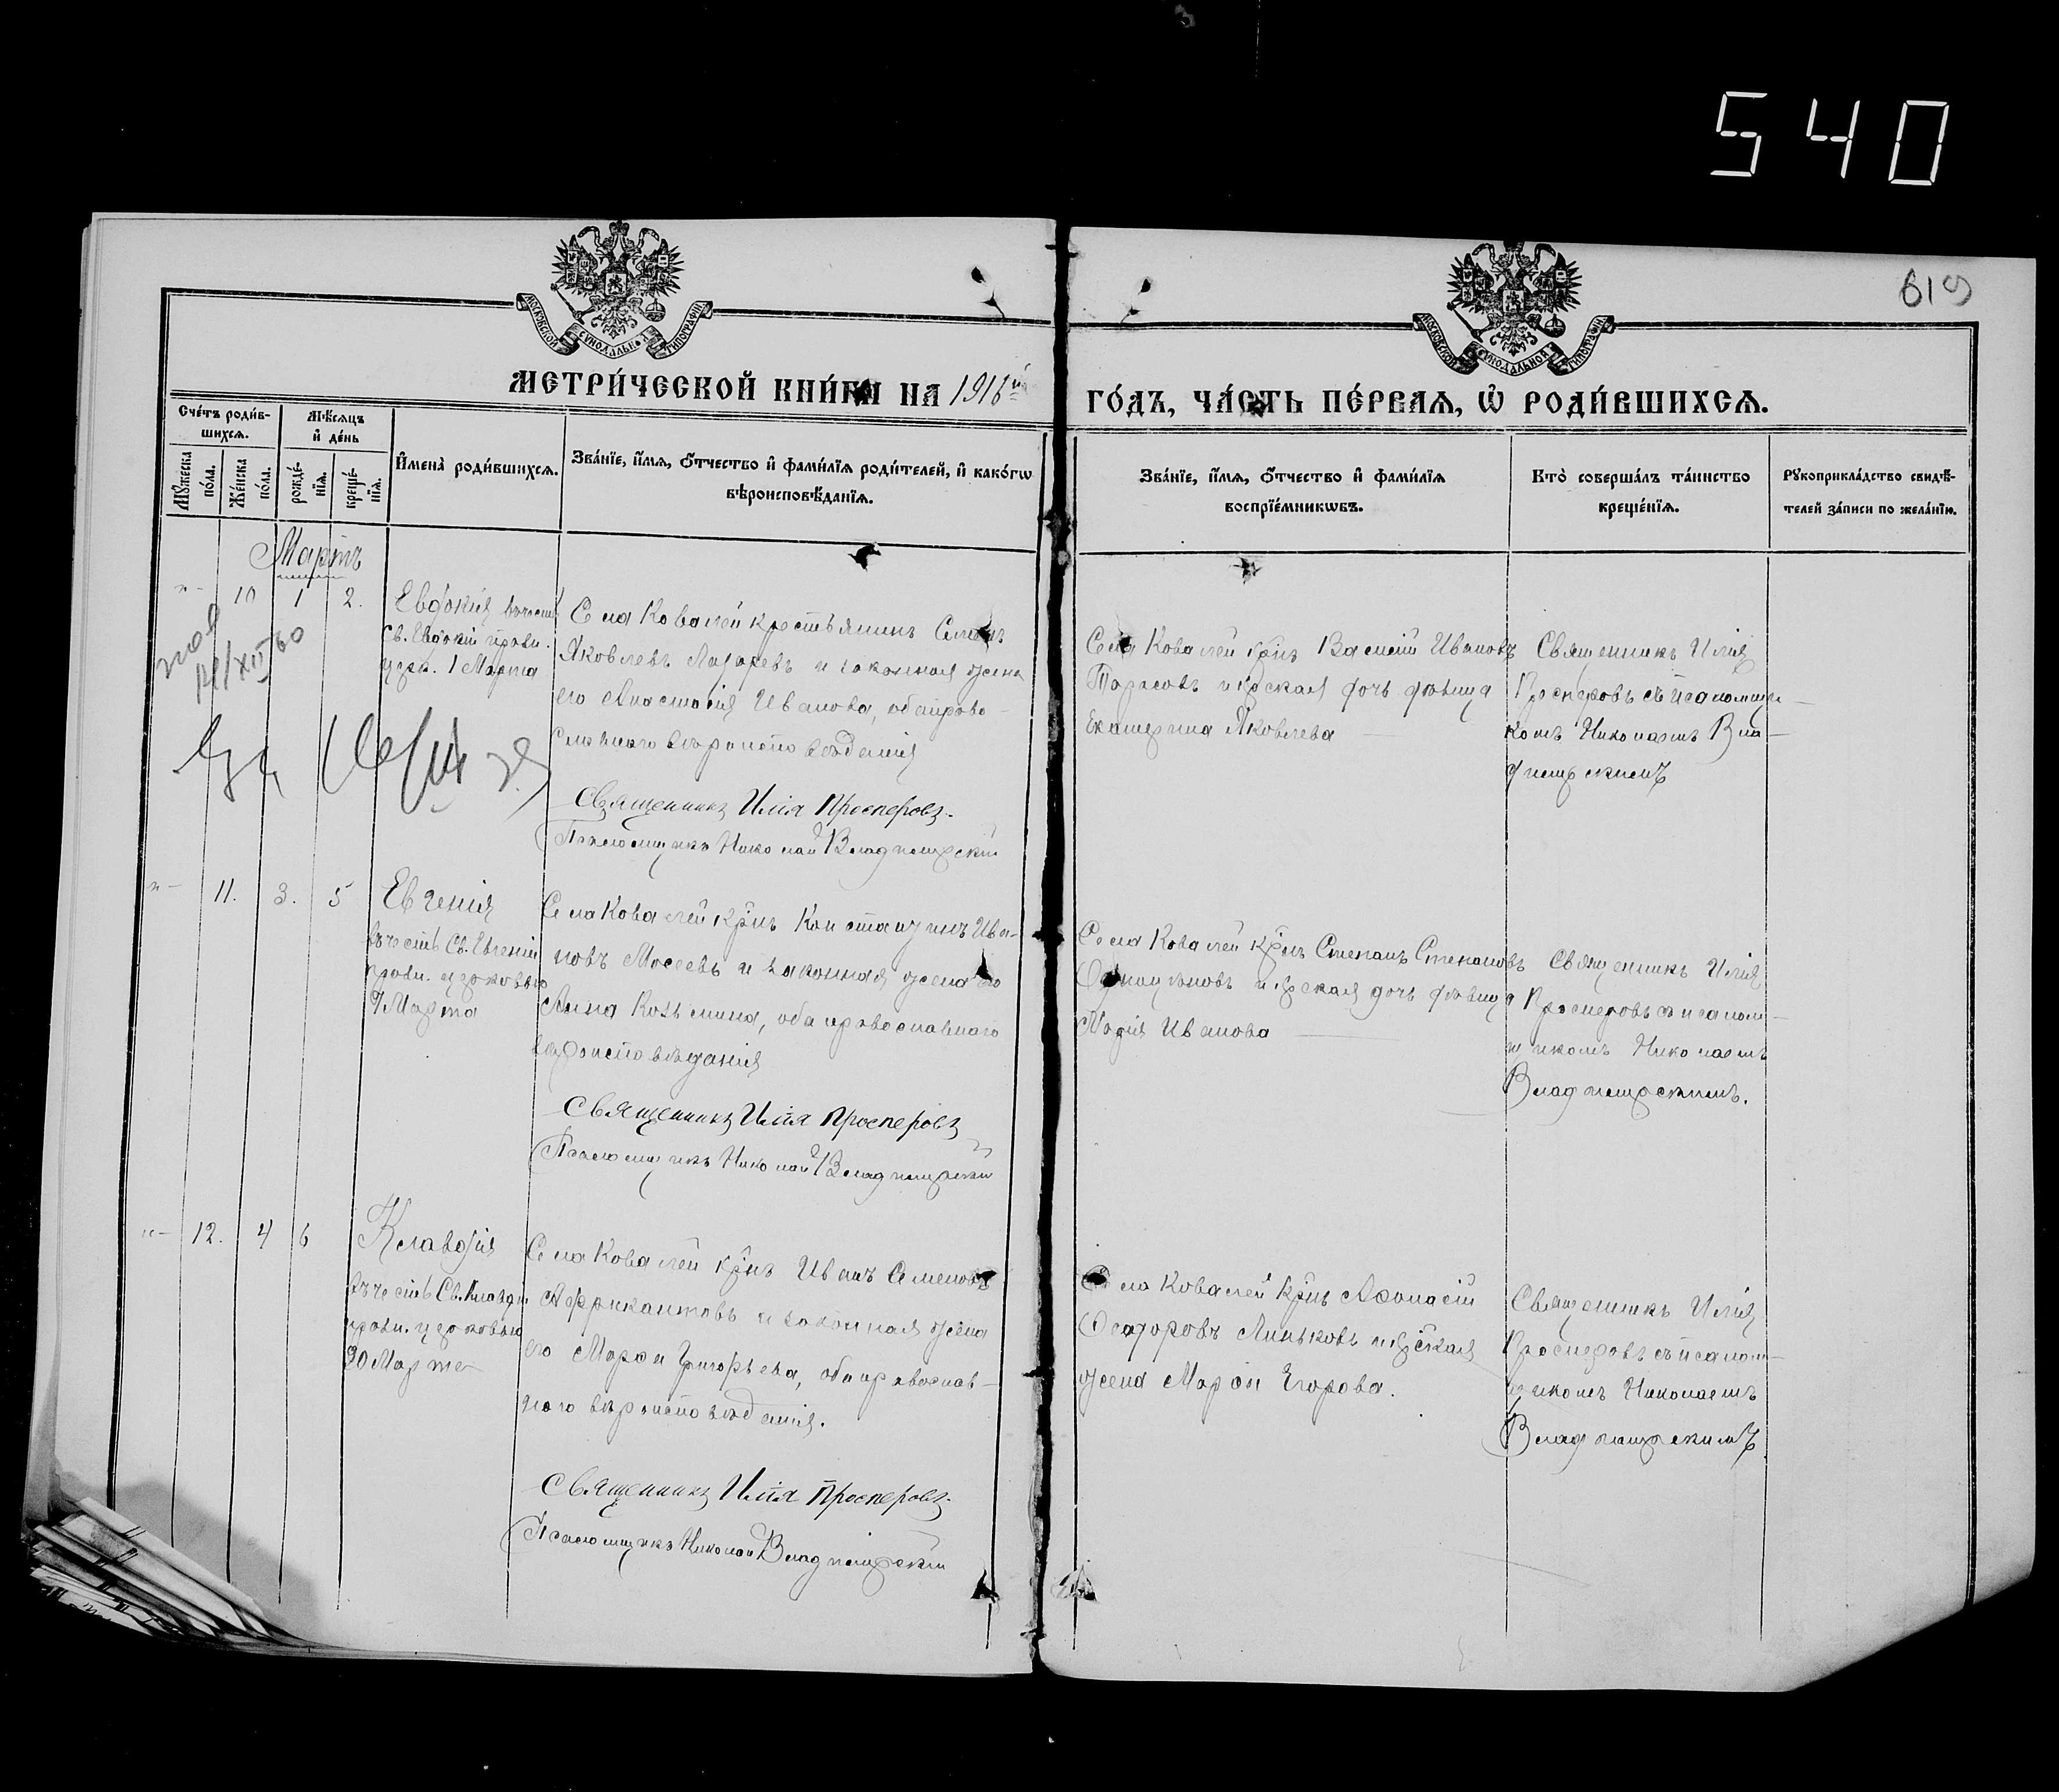 540
619
МОСКОВСКОЙ СѴНОДАЛЬНОЙ ТИПОГРАФІИ
МОСКОВСКОЙ СѴНОДАЛЬНОЙ ТИПОГРАФІИ
МЕТРИ́ЧЕСКОЙ КНИ́ГИ НА 1916й ГО́ДЪ, ЧА́СТЬ ПЕ́РВАЯ, Ѡ҆ РОДИ́ВШИХСЯ.
Сче́тъ роди́в-
шихся.
Мꙋ́жеска
по́ла.
Же́нска
по́ла.
Мѣ́сяцъ
и҆ де́нь
рожде́-
нїя.
креще́-
нїя.
И҆мена̀ роди́вшихся.
Зва́нїе, и҆́мя, ѻ҆́тчество и҆ фами́лїя роди́телей, и҆ како́гѡ
вѣроисповѣ́данїя.
Зва́нїе, и҆́мя, ѻ҆́тчество и҆ фами́лїя
воспрїе́мникѡвъ.
Кто̀ соверша́лъ та́инство
креще́нїя.
Рꙋкоприкла́дство свидѣ́-
телей за́писи по жела́нїю.
Мартъ
"- 10 1 2.
Евдокія въ честь
Св. Евдокіи празн.
церк. 1 Марта
Села Ковалей крестьянинъ Семенъ
Яковлевъ Лазаревъ и законная жена
его Анастасія Иванова, оба право-
славнаго вѣроисповѣданія
Священникъ Илія Просперовъ.
Псаломщикъ Николай Владимірскій
Села Ковалей крнъ Василій Ивановъ
Тарасовъ и крская дочь дѣвица
Екатерина Яковлева
Священникъ Илія
Просперовъ съ псаломщи-
комъ Николаемъ Вла-
димірскимъ
"- 11. 3. 5
Евгенія
въ честь Св. Евгеніи
празн. церковью
Марта
Села Ковалей крнъ Константинъ Ива-
новъ Мосеевъ и законная жена его
Анна Козьмина, оба православнаго
вѣроисповѣданія
Священникъ Илія Просперовъ
Псаломщикъ Николай Владимірскій
Села Ковалей крнъ Степанъ Степановъ
и крская дочь дѣвица
Марія Иванова
Священникъ Илія
Просперовъ съ псалом-
щикомъ Николаемъ
Владимірскимъ.
"- 12. 4 6
Клавдія
въ честь Св. Клавдіи
празн. церковью
20 Марта
Села Ковалей крнъ Иванъ Семеновъ
Африкантовъ и законная жена
его Марѳа Григорьева, оба православ-
наго вѣроисповѣданія.
Священникъ Илія Просперовъ.
Псаломщикъ Николай Владимірскій
Села Ковалей крнъ Аѳанасій
Ѳедоровъ Линьковъ и крская
жена Марѳа Егорова.
Священникъ Илія
Просперовъ съ псалом-
щикомъ Николаемъ
Владимірскимъ